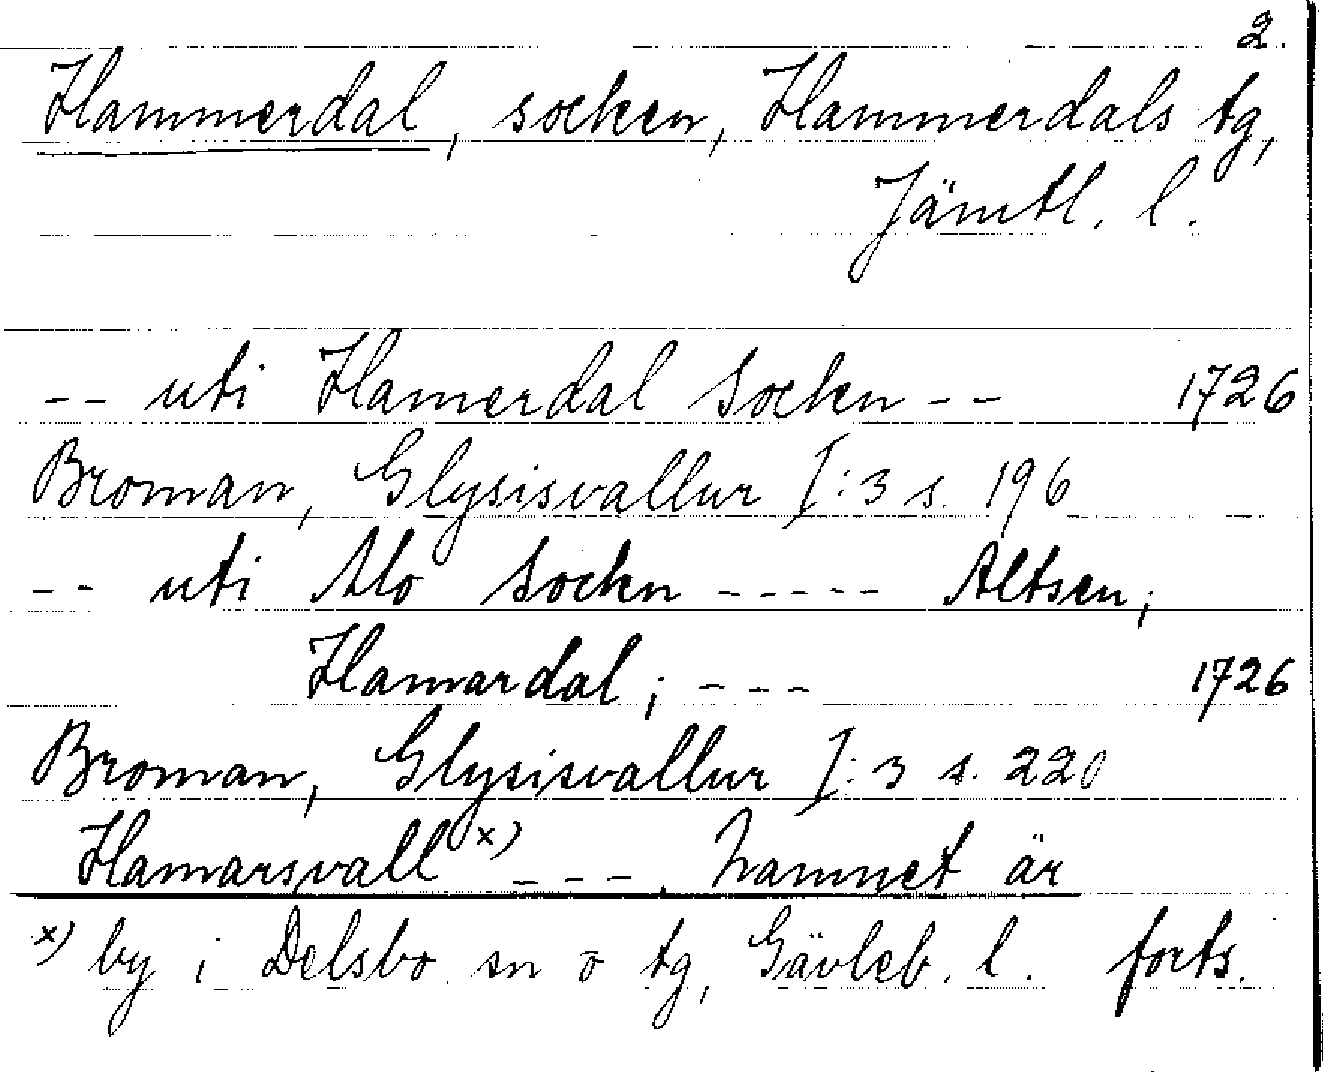 2.
Hammerdal, socken, Hammerdals tg,
Jämtl. l.
-- uti Hamerdal Sockn -- 1726
Broman, Glysisvallur I:3 s. 196
-- uti Mo Sockn ----- Altsen;
Hamardal; --- 1726
Broman, Glysisvallur I:3 s. 220
Hamarsvall x) ---. Namnet är
x) by i Delsbo sn o tg, Gävleb. l. forts.